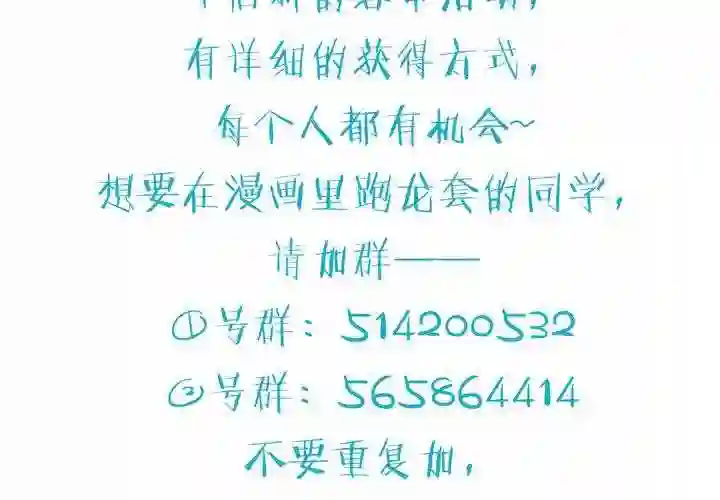 有详细的获得方式，
每个人都有机会~
想要在漫画里跑龙套的同学，
请加群——
①号群：514200532
②号群：565864414
不要重复加，